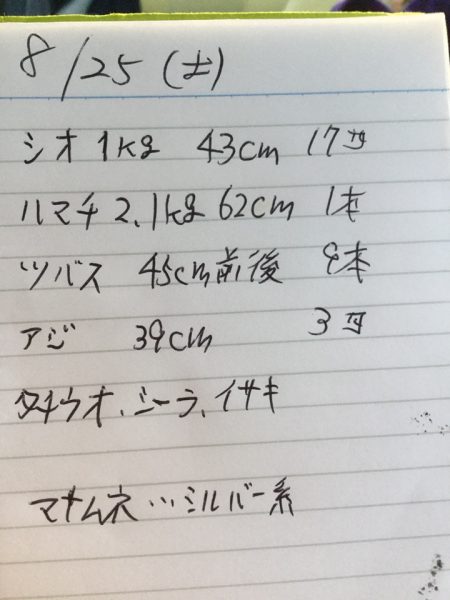 8/25 (土)
シオ 1kg 43cm 17
ハマチ 2.1kg 62cm 1本
ツバス 45cm前後 8本
アジ 39cm 3
タチウオ、シーラ、イサキ
マナムネ…シルバー系